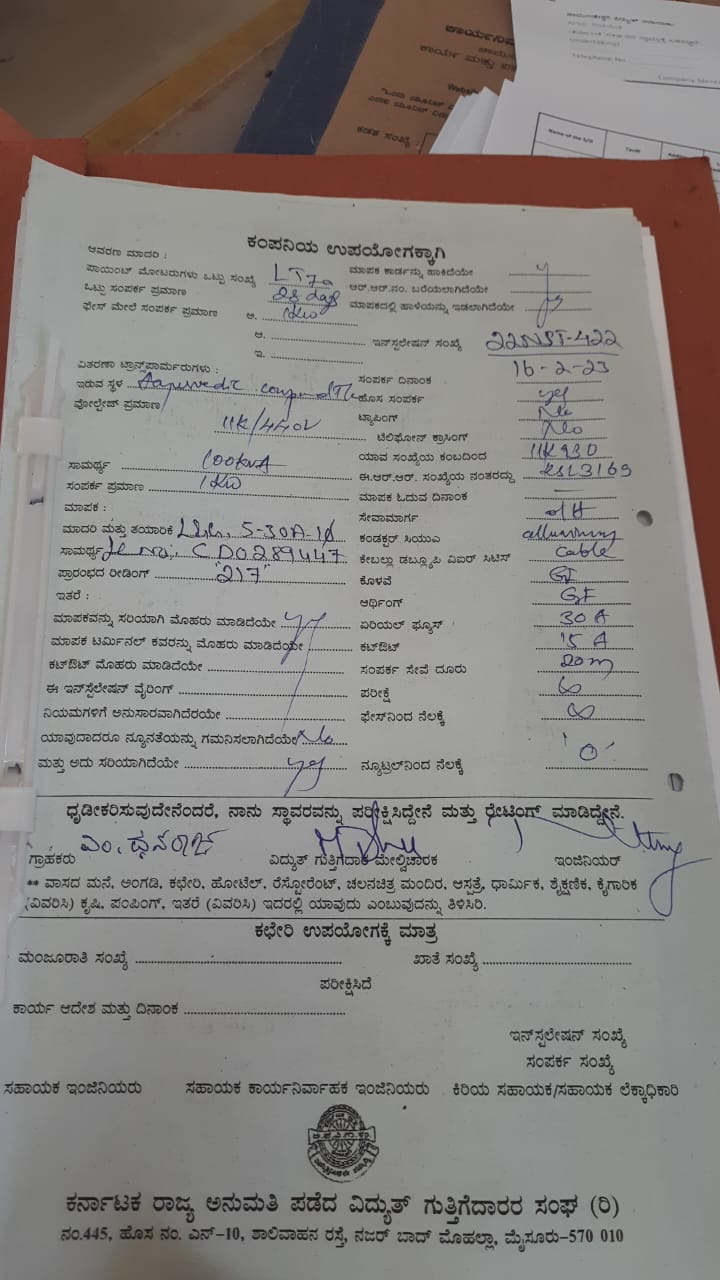 ಕಾರ್ಯನಿ
ಕಾರ್ಯ ಮತ್ತು
Telephone No
Company
Name of the S/D
Tariff
ಕಡತ ಸಂಖ್ಯೆ :
ಕಂಪನಿಯ ಉಪಯೋಗಕ್ಕಾಗಿ
ಆವರಣ ಮಾದರಿ :
ಪಾಯಿಂಟ್ ಮೋಟರುಗಳು ಒಟ್ಟು ಸಂಖ್ಯೆ LT7a ಮಾಪಕ ಕಾರ್ಡನ್ನು ಹಾಕಿದೆಯೇ
ಒಟ್ಟು ಸಂಪರ್ಕ ಪ್ರಮಾಣ 28 days ಆರ್.ಆರ್.ನಂ. ಬರೆಯಲಾಗಿದೆಯೇ
ಫೇಸ್ ಮೇಲೆ ಸಂಪರ್ಕ ಪ್ರಮಾಣ ಅ. 1KW ಮಾಪಕದಲ್ಲಿ ಹಾಳೆಯನ್ನು ಇಡಲಾಗಿದೆಯೇ yes
ಆ. ಇನ್‌ಸ್ಟಲೇಷನ್ ಸಂಖ್ಯೆ 22NST-422
ಇ.
ವಿತರಣಾ ಟ್ರಾನ್ಸ್‌ಫಾರ್ಮರುಗಳು : ಸಂಪರ್ಕ ದಿನಾಂಕ 16-2-23
ಇರುವ ಸ್ಥಳ Aayurvedic ಹೊಸ ಸಂಪರ್ಕ yes
ವೋಲ್ಟೇಜ್ ಪ್ರಮಾಣ 11K/440V ಟ್ಯಾಪಿಂಗ್ No
ಟೆಲಿಫೋನ್ ಕ್ರಾಸಿಂಗ್ No
ಸಾಮರ್ಥ್ಯ 100KVA ಯಾವ ಸಂಖ್ಯೆಯ ಕಂಬದಿಂದ
ಸಂಪರ್ಕ ಪ್ರಮಾಣ 1KW ಈ.ಆರ್.ಆರ್. ಸಂಖ್ಯೆಯ ನಂತರದ್ದು KSL3169
ಮಾಪಕ : ಮಾಪಕ ಓದುವ ದಿನಾಂಕ —
ಸೇವಾಮಾರ್ಗ O/H
ಮಾದರಿ ಮತ್ತು ತಯಾರಿಕೆ 5-30A-1ø ಕಂಡಕ್ಟರ್ ಸಿಯುಎ
ಸಾಮರ್ಥ್ಯ CD0289447 ಕೇಬಲ್ಲು ಡಬ್ಲ್ಯೂಪಿ ವಿಐಆರ್ ಸಿಟಿಸ್ Cable
ಪ್ರಾರಂಭದ ರೀಡಿಂಗ್ "217" ಕೊಳವೆ GI
ಇತರೆ : ಆರ್ಥಿಂಗ್ GI
ಮಾಪಕವನ್ನು ಸರಿಯಾಗಿ ಮೊಹರು ಮಾಡಿದೆಯೇ yes ಏರಿಯಲ್ ಫ್ಯೂಸ್ 30 A
ಮಾಪಕ ಟರ್ಮಿನಲ್ ಕವರನ್ನು ಮೊಹರು ಮಾಡಿದೆಯೇ ಕಟ್‌ಔಟ್ 15 A
ಕಟ್‌ಔಟ್ ಮೊಹರು ಮಾಡಿದೆಯೇ ಸಂಪರ್ಕ ಸೇವೆ ದೂರು 20m
ಈ ಇನ್‌ಸ್ಟೆಲೇಷನ್ ವೈರಿಂಗ್ ಪರೀಕ್ಷೆ ∞
ನಿಯಮಗಳಿಗೆ ಅನುಸಾರವಾಗಿದೆರಯೇ ಫೇಸ್‌ನಿಂದ ನೆಲಕ್ಕೆ ∞
ಯಾವುದಾದರೂ ನ್ಯೂನತೆಯನ್ನು ಗಮನಿಸಲಾಗಿದೆಯೇ No
ಮತ್ತು ಅದು ಸರಿಯಾಗಿದೆಯೇ yes ನ್ಯೂಟ್ರಲ್‌ನಿಂದ ನೆಲಕ್ಕೆ '0'
ಧೃಡೀಕರಿಸುವುದೇನೆಂದರೆ, ನಾನು ಸ್ಥಾವರವನ್ನು ಪರೀಕ್ಷಿಸಿದ್ದೇನೆ ಮತ್ತು ರೇಟಿಂಗ್ ಮಾಡಿದ್ದೇನೆ.
ಎಂ. ಧನರಾಜ್
ಗ್ರಾಹಕರು ವಿದ್ಯುತ್ ಗುತ್ತಿಗೆದಾರ ಮೇಲ್ವಿಚಾರಕ ಇಂಜಿನಿಯರ್
** ವಾಸದ ಮನೆ, ಅಂಗಡಿ, ಕಛೇರಿ, ಹೋಟೆಲ್, ರೆಸ್ಟೋರೆಂಟ್, ಚಲನಚಿತ್ರ ಮಂದಿರ, ಆಸ್ಪತ್ರೆ, ಧಾರ್ಮಿಕ, ಶೈಕ್ಷಣಿಕ, ಕೈಗಾರಿಕ
(ವಿವರಿಸಿ) ಕೃಷಿ, ಪಂಪಿಂಗ್, ಇತರೆ (ವಿವರಿಸಿ) ಇದರಲ್ಲಿ ಯಾವುದು ಎಂಬುವುದನ್ನು ತಿಳಿಸಿರಿ.
ಕಛೇರಿ ಉಪಯೋಗಕ್ಕೆ ಮಾತ್ರ
ಮಂಜೂರಾತಿ ಸಂಖ್ಯೆ ಖಾತೆ ಸಂಖ್ಯೆ
ಪರೀಕ್ಷಿಸಿದೆ
ಕಾರ್ಯ ಆದೇಶ ಮತ್ತು ದಿನಾಂಕ
ಇನ್‌ಸ್ಪಲೇಷನ್ ಸಂಖ್ಯೆ
ಸಂಪರ್ಕ ಸಂಖ್ಯೆ
ಸಹಾಯಕ ಇಂಜಿನಿಯರು ಸಹಾಯಕ ಕಾರ್ಯನಿರ್ವಾಹಕ ಇಂಜಿನಿಯರು ಕಿರಿಯ ಸಹಾಯಕ/ಸಹಾಯಕ ಲೆಕ್ಕಾಧಿಕಾರಿ
ಕರ್ನಾಟಕ ರಾಜ್ಯ ಅನುಮತಿ ಪಡೆದ ವಿದ್ಯುತ್ ಗುತ್ತಿಗೆದಾರರ ಸಂಘ (ರಿ)
ನಂ.445, ಹೊಸ ನಂ. ಎನ್-10, ಶಾಲಿವಾಹನ ರಸ್ತೆ, ನಜರ್ ಬಾದ್ ಮೊಹಲ್ಲಾ, ಮೈಸೂರು-570 010